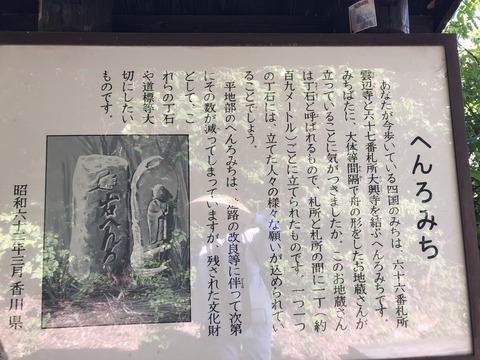 へんろみち
あなたが今歩いている四国のみちは、六十六番札所
雲辺寺と六十七番札所大興寺を結ぶへんろみちです。
みちばたに、大体等間隔で舟の形をしたお地蔵さんが
立っていることに気がつきましたか。このお地蔵さん
は丁石と呼ばれるもので、札所と札所の間に一丁（約
百九メートル）ごとに立てられたものです。一つ一つ
の丁石には、立てた人々の様々な願いが込められてい
ることでしょう。
平地部のへんろみちは、道路の改良等に伴って次第
にその数が減ってしまっていますが、残された文化財
として、こ
れらの丁石
や道標等大
切にしたい
ものです。
昭和六十二年三月 香川県